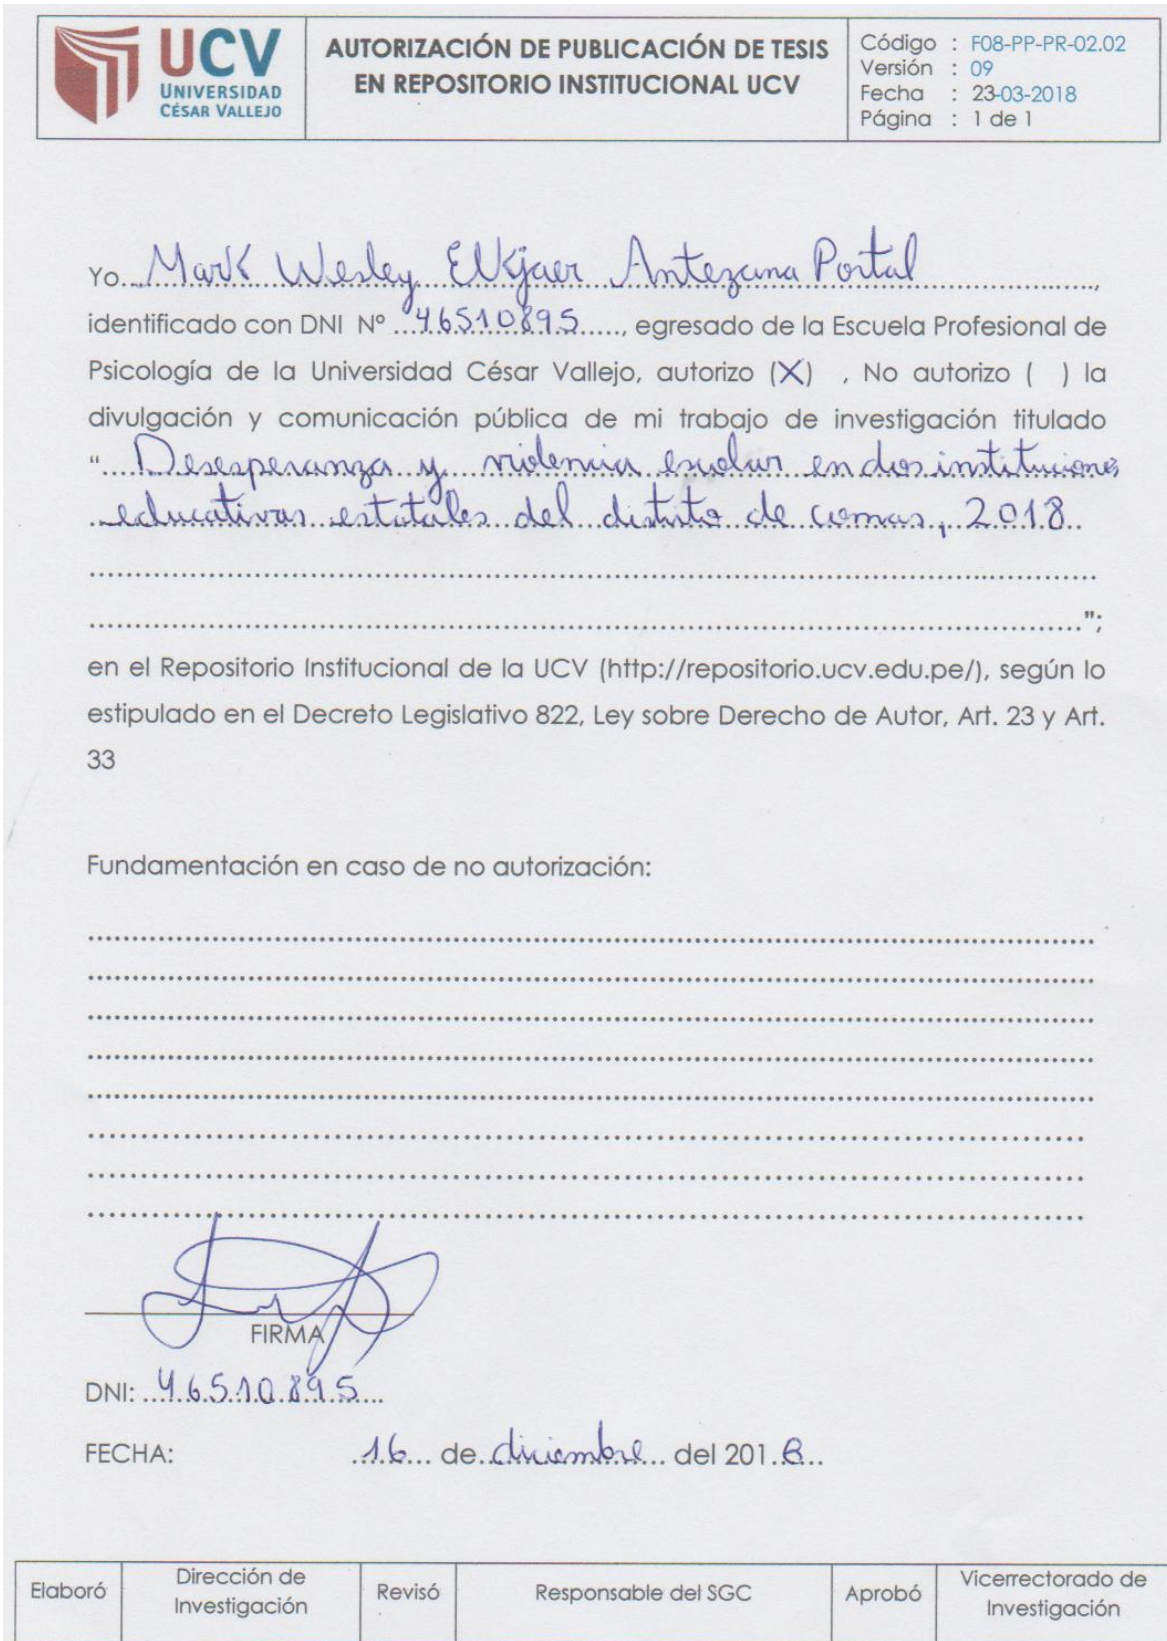 UCV
UNIVERSIDAD
CÉSAR VALLEJO
AUTORIZACIÓN DE PUBLICACIÓN DE TESIS
EN REPOSITORIO INSTITUCIONAL UCV
Código : F08-PP-PR-02.02
Versión : 09
Fecha : 23-03-2018
Página : 1 de 1
Yo Mark Wesley Elkjaer Antezana Portal,
identificado con DNI Nº 46510895, egresado de la Escuela Profesional de
Psicología de la Universidad César Vallejo, autorizo (X) , No autorizo ( ) la
divulgación y comunicación pública de mi trabajo de investigación titulado
" Desesperanza y violencia escolar en dos instituciones
educativas estatales del distrito de comas, 2018
";
en el Repositorio Institucional de la UCV (http://repositorio.ucv.edu.pe/), según lo
estipulado en el Decreto Legislativo 822, Ley sobre Derecho de Autor, Art. 23 y Art.
33
Fundamentación en caso de no autorización:
FIRMA
DNI: 46510895
FECHA: 16 de diciembre del 2018
Elaboró
Dirección de
Investigación
Revisó
Responsable del SGC
Aprobó
Vicerrectorado de
Investigación